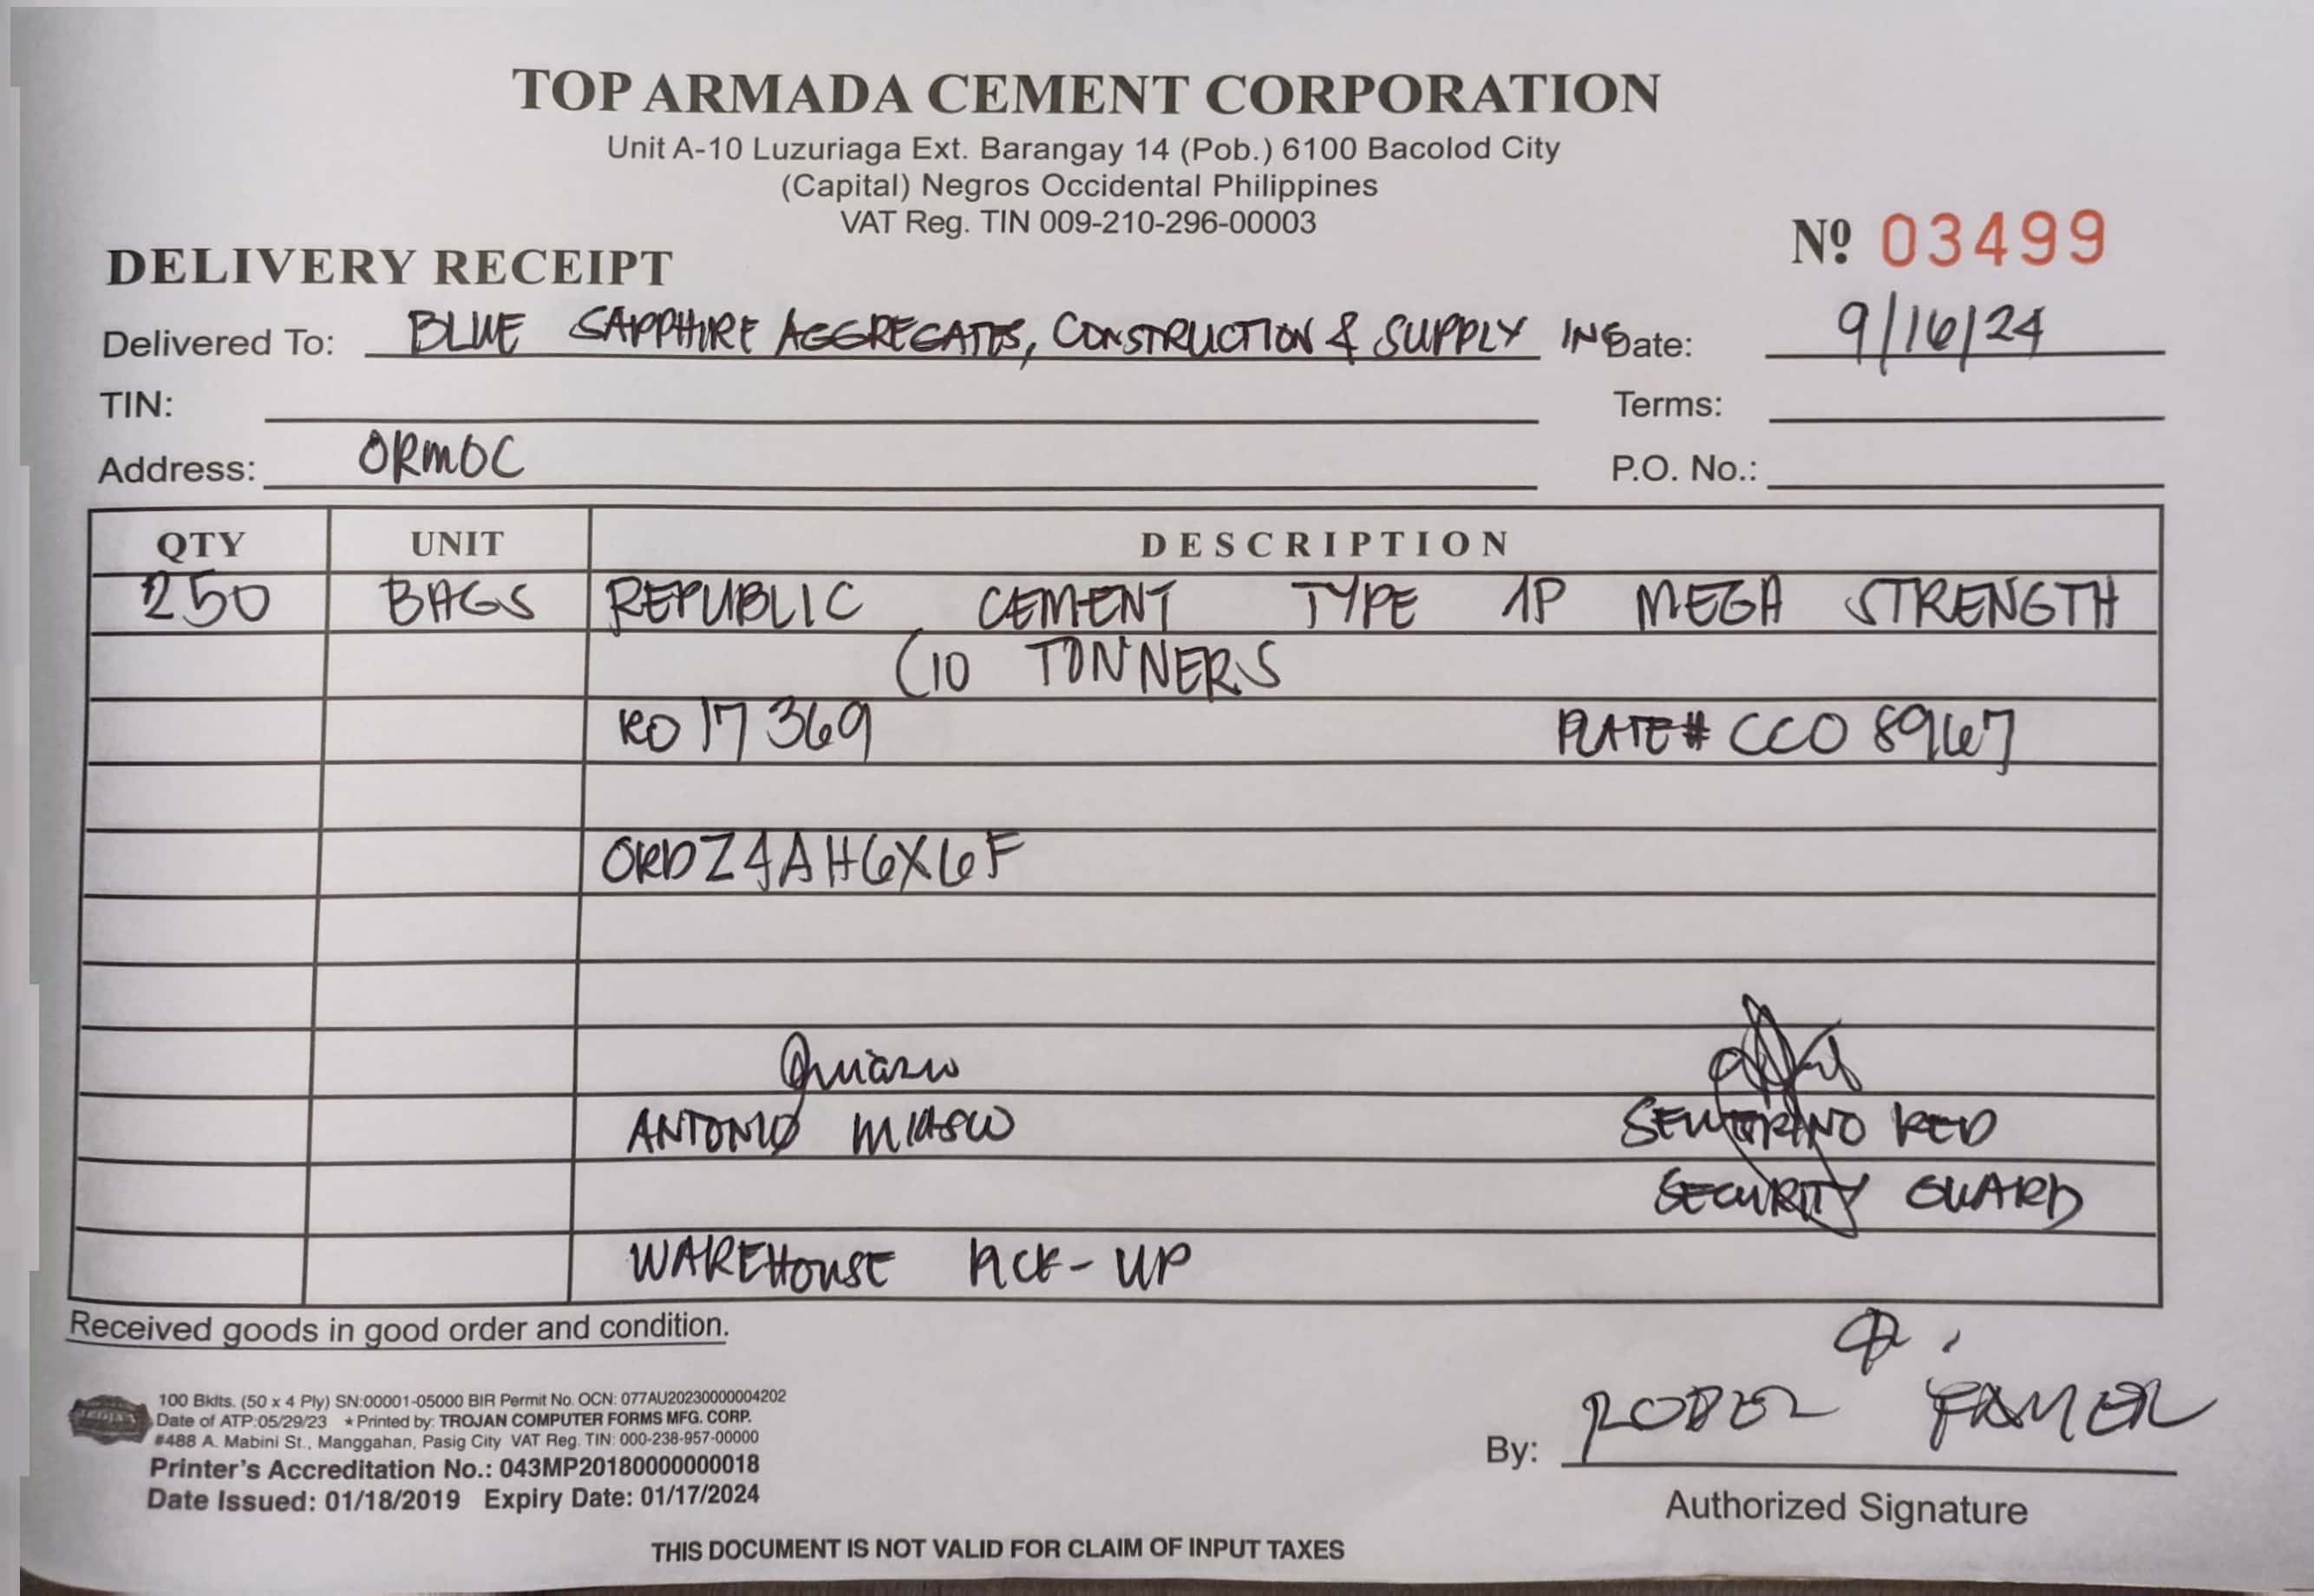 TOP ARMADA CEMENT CORPORATION
Unit A-10 Luzuriaga Ext. Barangay 14 (Pob.) 6100 Bacolod City
(Capital) Negros Occidental Philippines
VAT Reg. TIN 009-210-296-00003
Nº 03499
DELIVERY RECEIPT
Delivered To: BLUE SAPPHIRE AGGREGATES, CONSTRUCTION & SUPPLY INC Date: 9/16/24
TIN: Terms:
Address: ORMOC P.O. No.:
QTY UNIT DESCRIPTION
250 BAGS REPUBLIC CEMENT TYPE 1P MEGA STRENGTH
(10 TONNERS
RO 17369 PLATE# CCO 8967
ORDZ4AH6X6F
ANTONIO
SEVERINO RED
SECURITY GUARD
WAREHOUSE PICK-UP
Received goods in good order and condition.
100 Bklts. (50 x 4 Ply) SN:00001-05000 BIR Permit No. OCN: 077AU20230000004202
Date of ATP:05/29/23 ★ Printed by: TROJAN COMPUTER FORMS MFG. CORP.
#488 A. Mabini St., Manggahan, Pasig City VAT Reg. TIN: 000-238-957-00000
Printer's Accreditation No.: 043MP20180000000018
Date Issued: 01/18/2019 Expiry Date: 01/17/2024
By:
Authorized Signature
THIS DOCUMENT IS NOT VALID FOR CLAIM OF INPUT TAXES